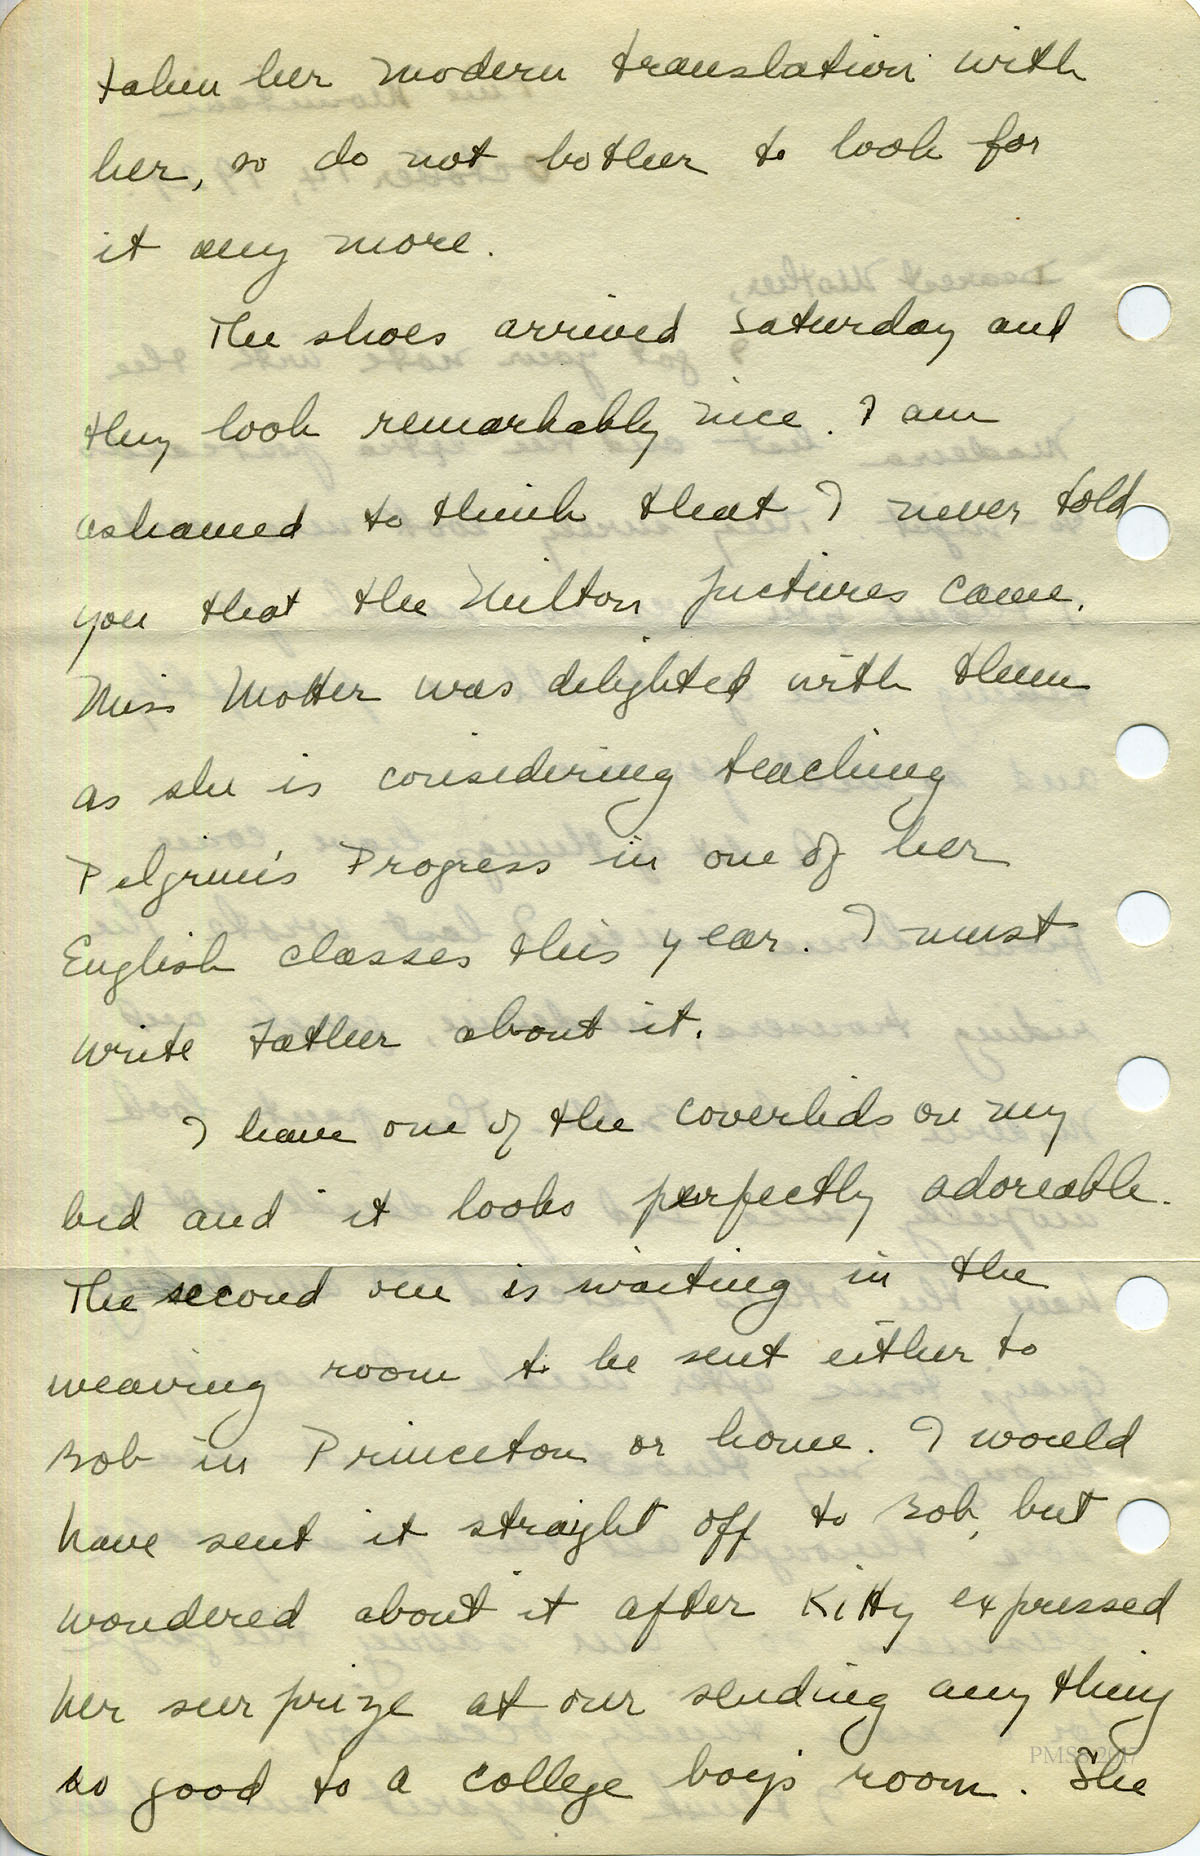 taken her modern translation with
her, so do not bother to look for
it any more.
The shoes arrived Saturday and
they look remarkably nice. I am
ashamed to think that I never told
you that the Milton pictures came.
Miss Motter was delighted with them
as she is considering teaching
Pilgrim's Progress in one of her
English classes this year. I must
write Father about it.
I have one of the coverlids on my
bed and it looks perfectly adoreable.
The second one is waiting in the
weaving room to be sent either to
Bob in Princeton or home. I would
have sent it straight off to Bob, but
wondered about it after Kitty expressed
her surprize at our sending anything
so good to a college boy's room. She